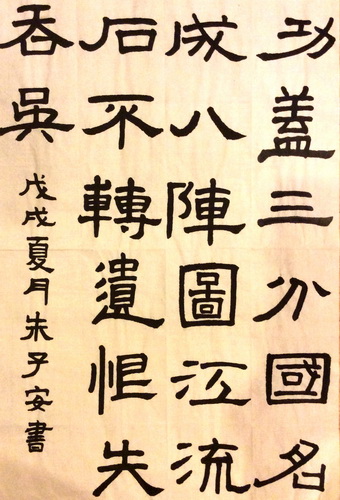 功蓋三分國名
成八陣圖江流
石不轉遺恨失
吞吳
戊戌夏月朱子安書